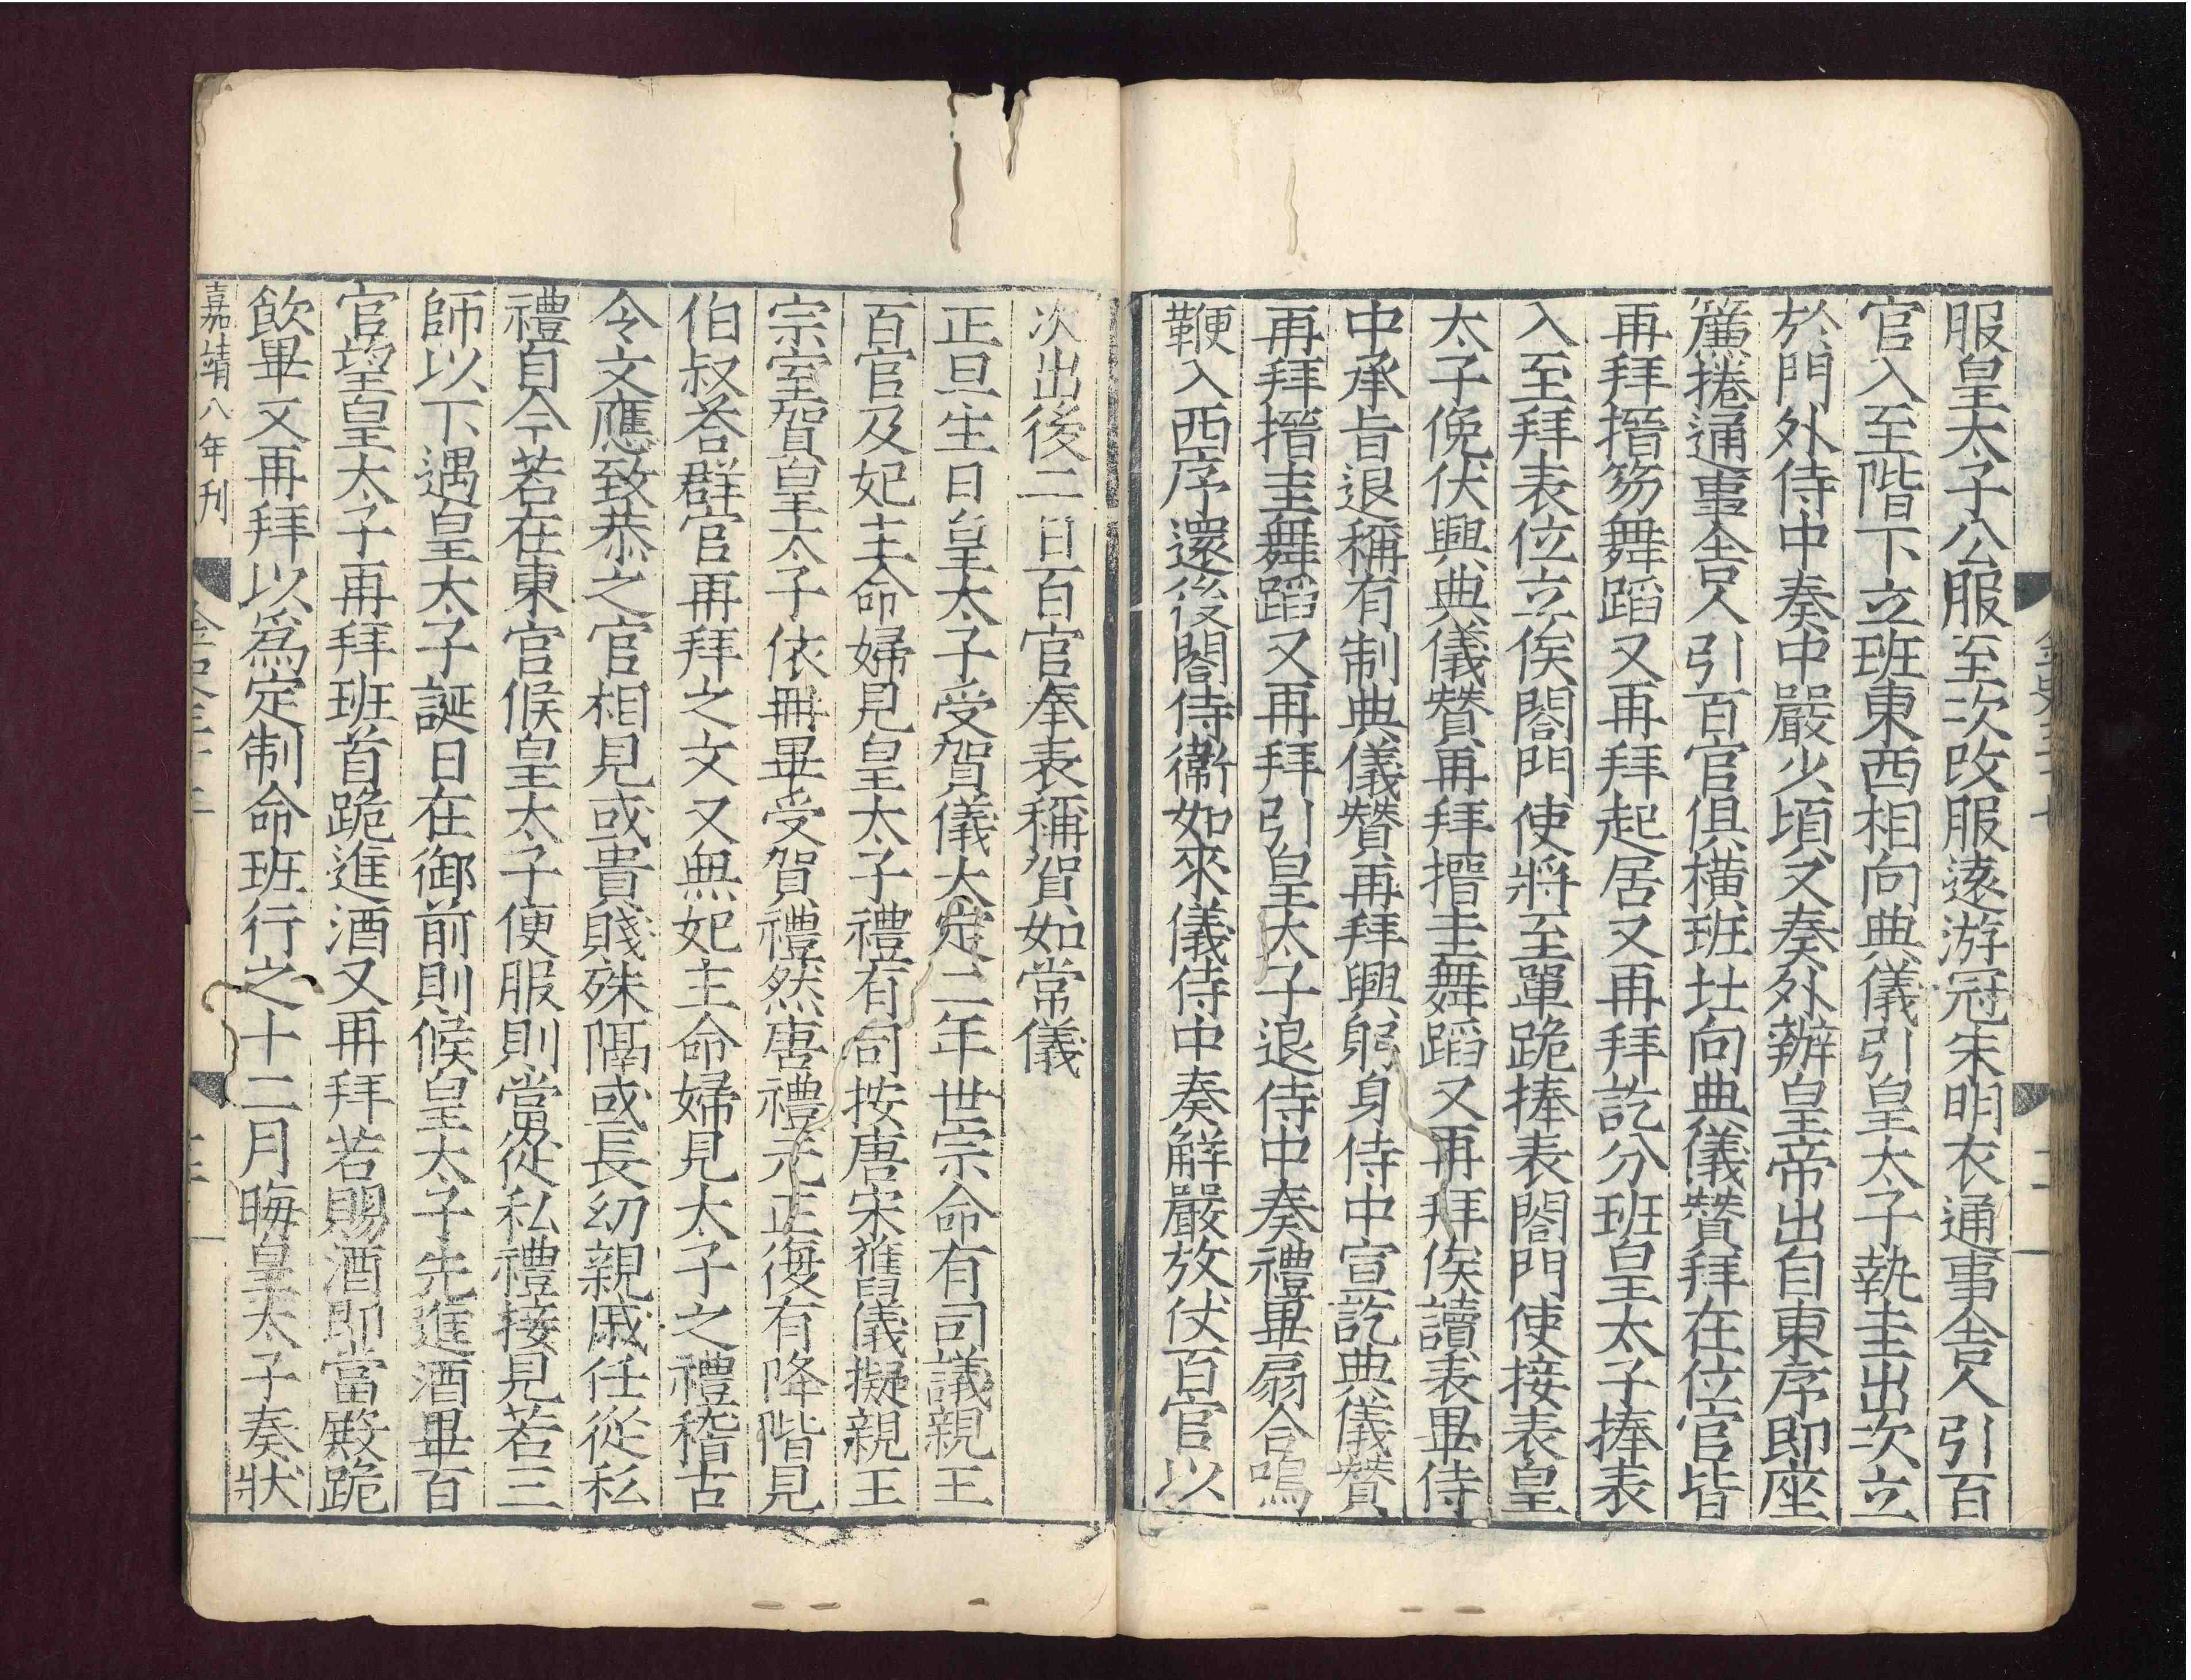 服皇太子公服至次改服遠游冠朱明衣通事舍人引百
官入至階下立班東西相向典儀引皇太子執圭出次立
於門外侍中奏中嚴少頃又奏外辦皇帝出自東序即座
簾捲通事舍人引百官俱橫班北向典儀贊拜在位官皆
再拜搢笏舞蹈又再拜起居又再拜訖分班皇太子捧表
入至拜表位立俟閤門使將至單跪捧表閤門使接表皇
太子俛伏興典儀贊再拜搢圭舞蹈又再拜俟讀表畢侍
中承旨退稱有制典儀贊再拜興躬身侍中宣訖典儀贊
再拜搢圭舞蹈又再拜引皇太子退侍中奏禮畢扇合鳴
鞭入西序還後閤侍衛如來儀侍中奏解嚴放仗百官以
次出後二日百官奉表稱賀如常儀
正旦生日皇太子受賀儀大定二年世宗命有司議親王
百官及妃主命婦見皇太子禮有司按唐宋舊儀擬親王
宗室賀皇太子依冊畢受賀禮然唐禮元正復有降階見
伯叔答群官再拜之文又無妃主命婦見太子之禮稽古
令文應致恭之官相見或貴賤殊隔或長幼親戚任從私
禮自今若在東宮候皇太子便服則當從私禮接見若三
師以下遇皇太子誕日在御前則候皇太子先進酒畢百
官望皇太子再拜班首跪進酒又再拜若賜酒即當殿跪
飲畢又再拜以爲定制命班行之十二月晦皇太子奏狀
嘉靖八年刊